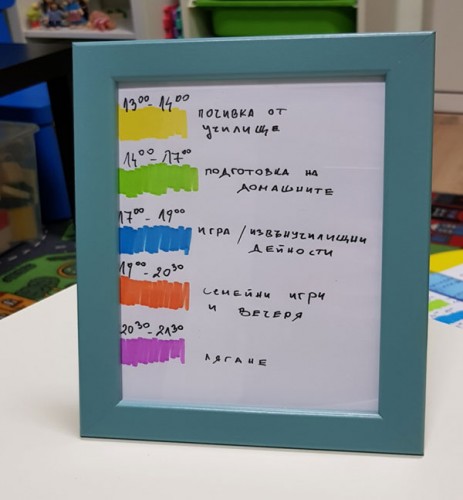 13⁰⁰ - 14⁰⁰
ПОЧИВКА ОТ
УЧИЛИЩЕ
14⁰⁰ - 17⁰⁰
ПОДГОТОВКА НА
ДОМАШНИТЕ
17⁰⁰ - 19⁰⁰
ИГРА / ИЗВЪНУЧИЛИЩНИ
ДЕЙНОСТИ
19⁰⁰ - 20³⁰
СЕМЕЙНИ ИГРИ
И ВЕЧЕРЯ
20³⁰ - 21³⁰
ЛЯГАНЕ